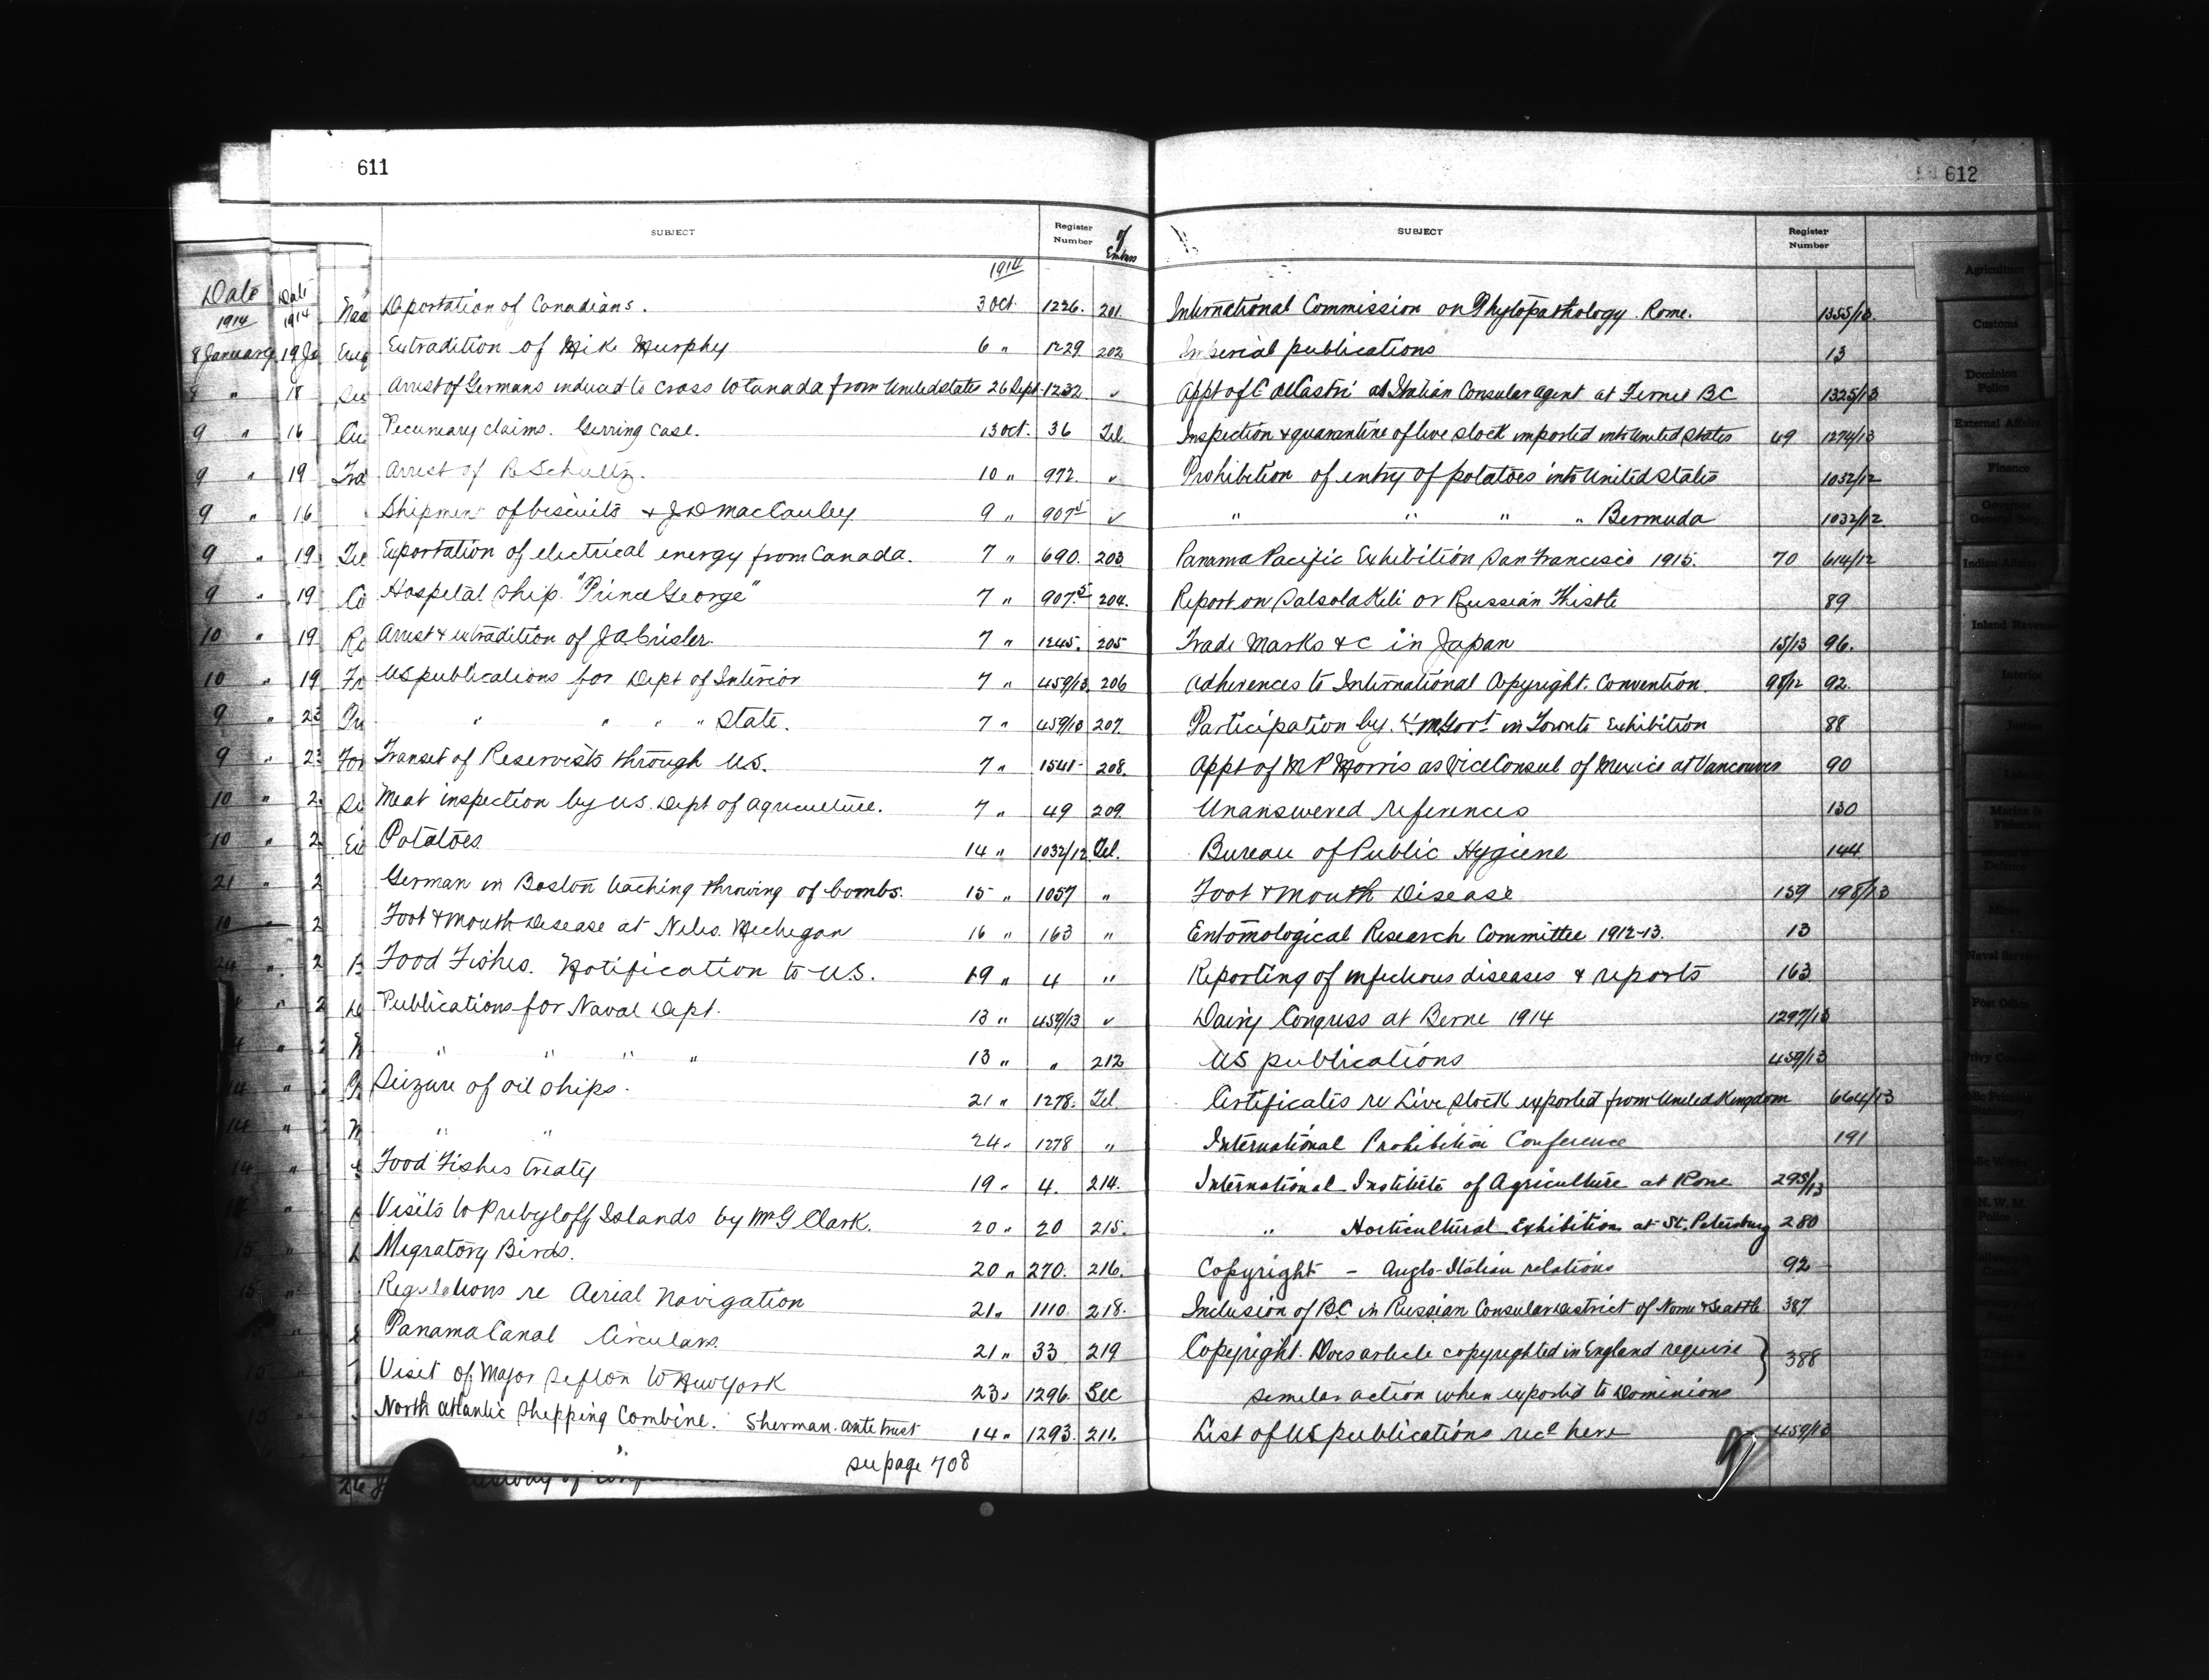 611
SUBJECT Register Number of Embass
1914
Deportation of Canadians. 3 Oct. 1226. 201.
Extradition of Mike Murphy 6 " 1229 202
Arrest of Germans induced to cross to Canada from United States 26 Sept. 1232 "
Pecuniary claims. Gerring case. 13 Oct. 36 Tel.
Arrest of R Schultz. 10 " 972. "
Shipment of biscuits & J D MacCauley 9 " 907 5 "
Exportation of electrical energy from Canada. 7 " 690. 203
Hospital ship. "Prince George" 7 " 907.5 204.
Arrest & extradition of J A Crisler. 7 " 1245. 205
US publications for Dept of Interior 7 " 459/13 206
" " " " State. 7 " 459/13 207.
Transit of Reservists through US. 7 " 1541 208.
Meat inspection by US. Dept of Agriculture. 7 " 49 209.
Potatoes 14 " 1032/12 Tel.
German in Boston teaching throwing of bombs. 15 " 1057 "
Foot & Mouth Disease at Niles. Michegan 16 " 163 "
Food Fishes. Notification to US. 19 " 4 "
Publications for Naval Dept. 13 " 459/13 "
" " " " 13 " " 212
Seizure of oil ships. 21 " 1278. Tel
" " 24 " 1278 "
Food Fishes treaty 19 " 4. 214.
Visits to Prebyloff Islands by Mr G Clark. 20 " 20 215.
Migratory Birds. 20 " 270. 216.
Regulations re Aerial Navigation 21 " 1110 218.
Panama Canal Circulars. 21 " 33 219
Visit of Major Sefton to New York 23 " 1296. Sec
North Atlantic Shipping Combine. Sherman. ante trust 14 " 1293. 211.
see page 708
Date 1914
8 January
9 "
9 "
9 "
9 "
9 "
9 "
10 "
10 "
9 "
9 "
10 "
10 "
21 "
10 "
Date 1914
19 Ja
18
16
19
16
19
19
19
19
23
612
SUBJECT Register Number
International Commission on Phytopathology. Rome. 1355/13.
Imperial publications 13
Appt of C deCastri as Italian Consular Agent at Fernie BC 1325/13
Inspection & quarantine of live stock imported into United States 49 1274/13
Prohibition of entry of potatoes into United States 1032/12
" " " " Bermuda 1032/12.
Panama Pacific Exhibition San Francisco 1915. 70 614/12
Report on Salsola Keli or Russian Thistle 89
Trade Marks &c in Japan 15/13 96.
Adherences to International Copyright. Convention. 98/12 92.
Participation by H M Govt in Toronto Exhibition 88
Appt of M P Morris as Vice Consul of Mexico at Vancouver 90
Unanswered references 130
Bureau of Public Hygiene 144
Foot & Mouth Disease 159 198/13
Entomological Research Committee 1912-13. 13
Reporting of infectious diseases & reports 163
Dairy Congress at Berne 1914 1297/13
US publications 459/13
Certificates re Live stock exported from United Kingdom 664/13
International Prohibition Conference 191
International Institute of Agriculture at Rome 295/13
" Horticultural Exhibition at St. Petersburg 280
Copyright - Anglo-Italian relations 92
Inclusion of BC in Russian Consular District of Nome & Seattle 387
Copyright. Does article copyrighted in England require } 388
similar action when exported to Dominions
List of US publications recd here 459/13
Agriculture
Customs
Dominion Police
External Affairs
Finance
Governor General Secy.
Indian Affairs
Inland Revenue
Interior
Justice
Labour
Marine & Fisheries
Mines
Naval Service
Post Office